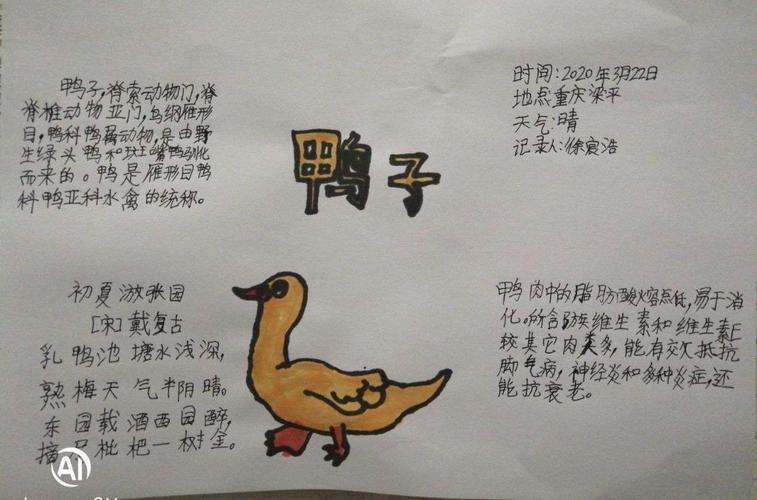 鸭子,脊索动物门,脊
脊椎动物亚门,鸟纲雁形
目,鸭科鸭属动物,是由野
生绿头鸭和斑嘴鸭驯化
而来的。鸭是雁形目鸭
科鸭亚科水禽的统称。
鸭子
时间:2020年3月22日
地点重庆梁平
天气:晴
记录人:徐宸浩
初夏游张园
[宋]戴复古
乳鸭池塘水浅深,
熟梅天气半阴晴。
东园载酒西园醉,
摘尽枇杷一树金。
鸭肉中的脂肪酸熔点低,易于消
化。所含B族维生素和维生素E
较其它肉类多,能有效抵抗
脚气病,神经炎和多种炎症,还
能抗衰老。
AI